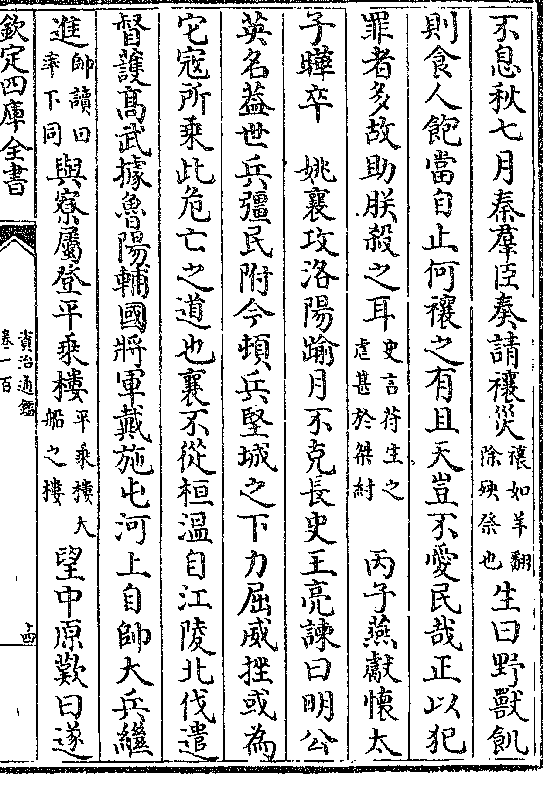 不息秋七月秦羣臣奏請禳災禳如羊翻除殃祭也生曰野獸飢
則食人飽當自止何禳之有且天豈不愛民哉正以犯
罪者多故助朕殺之耳史言苻生之虐甚於桀紂 丙子燕獻懷太
子曄卒 姚襄攻洛陽踰月不克長史王亮諫曰明公
英名葢世兵彊民附今頓兵堅城之下力屈威挫或為
它寇所乗此危亡之道也襄不從桓溫自江陵北伐遣
督護髙武據魯陽輔國將軍戴施屯河上自帥大兵繼
進帥讀曰率下同與寮屬登平乗樓平乗樓大船之樓望中原歎曰遂
欽定四庫全書
資治通鑑
卷一百
十四